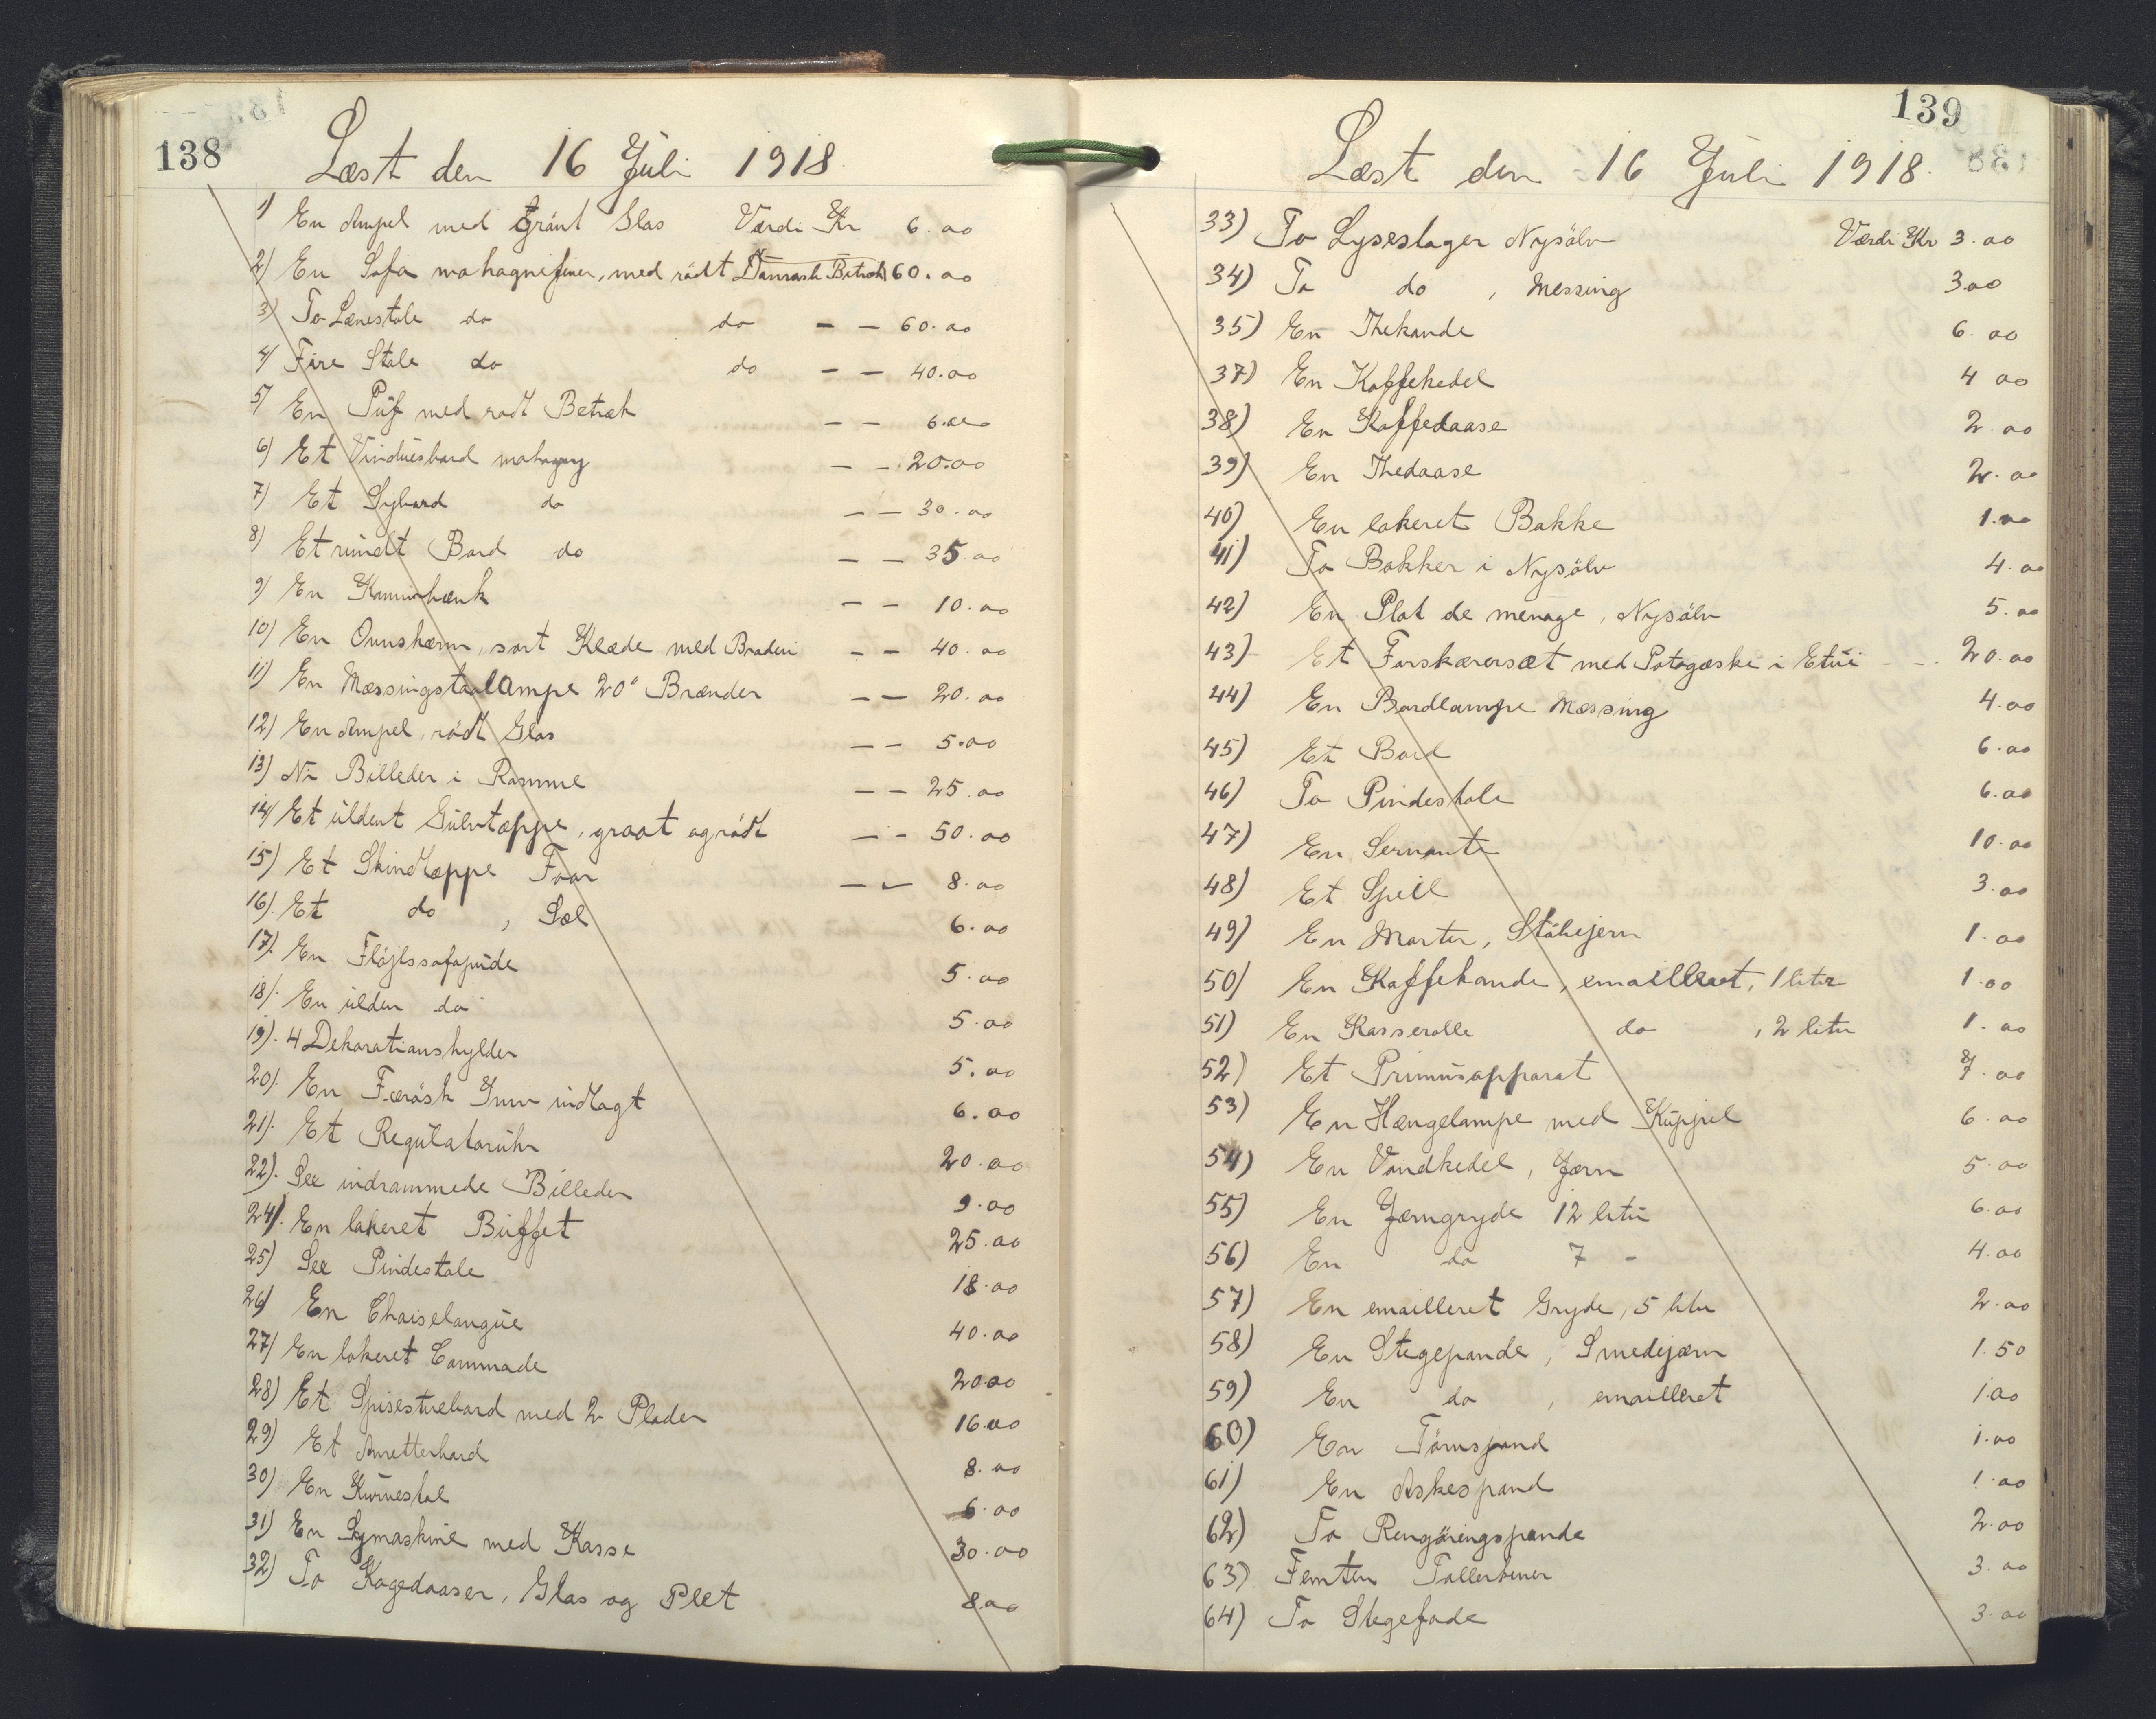 138
Læst den 16 Juli 1918.
1) En Ampel med Grønt Glas Værdi Kr 6.00
2) En Sofa mahagnifiner, med rødt Damask Betræk 60.00
3) To Lænestole do do — — 60.00
4) Fire Stole do do — — 40.00
5) En Puf med rødt Betræk — — 6.00
6) Et Vinduesbord mahogny — — 20.00
7) Et Sybord do — — 30.00
8) Et rundt Bord do — — 35.00
9) En Kaminbænk — — 10.00
10) En Ovnskærm, sort Klæde med Broderi — — 40.00
11) En Messingstaalampe 20" Brænder — — 20.00
12) En Ampel, rødt Glas — — 5.00
13) Ni Billeder i Ramme — — 25.00
14) Et uldent Gulvtæppe, graat og rødt — — 50.00
15) Et Skindtæppe Faar — — 8.00
16). Et do , Sæl 6.00
17). En Fløjlssofapude 5.00
18). En ulden do 5.00
19). 4 Dekorationshylder 5.00
20). En Færøsk indlagt 6.00
21). Et Regulatoruhr 20.00
22). See indrammede Billeder 9.00
24). En lakeret Buffet 25.00
25) See Pindestole 18.00
26) En Chaiselongue 40.00
27) En lakeret Commode 20.00
28) Et Spisestuebord med 2 Plader 16.00
29) Et Anretterbord 8.00
30) En Kurvestol 6.00
31) En Symaskine med Kasse 30.00
32) To Kagedaaser, Glas og Plet 8.00
139
Læst den 16 Juli 1918.
33) To Lysestager Nysølv Værdi Kr 3.00
34) To do , Messing 3.00
35) En Thekande 6.00
37) En Kaffekedel 4 00
38) En Kaffedaase 2.00
39) En Thedaase 2.00
40) En lakeret Bakke 1.00
41) To Bakker i Nysølv 4.00
42) En Plat de menage, Nysølv 5.00
43) Et Forskærersæt med Potageske i Etui - - 20.00
44) En Bordlampe Messing 4.00
45) Et Bord 6.00
46) To Pindestole 6.00
47) En Servante 10.00
48) Et Speil 3.00
49) En Morter, Støbejern 1.00
50) En Kaffekande, emailleret, 1 liter 1.00
51) En Kasserolle do , 2 liter 1.00
52) Et Primusapparat 7.00
53) En Hængelampe med Kuppel 6.00
54) En Vandkedel, Jærn 5.00
55) En Jærngryde 12 liter 6.00
56) En do 7 - 4.00
57) En emailleret Gryde, 5 liter 2.00
58) En Stegepande, Smedejærn 1.50
59) En do , emailleret 1.00
60) En Tørnspand 1.00
61) En Askespand 1.00
62) To Rengøringspande 2.00
63) Femten Tallerkener 3.00
64) To Stegefade 3.00